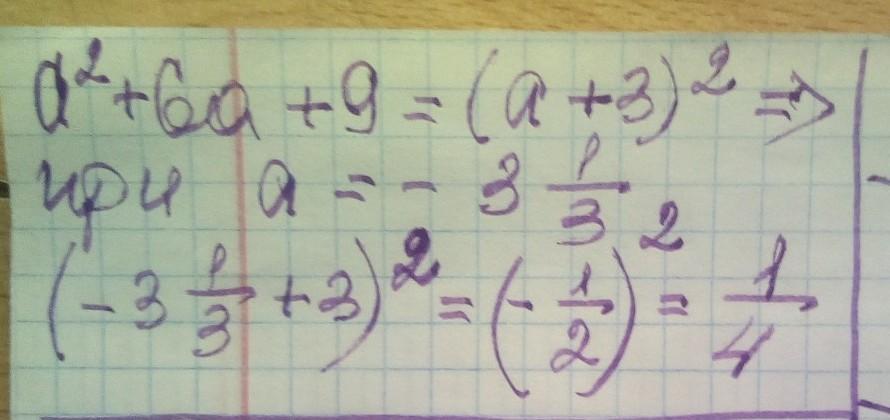 a² + 6a + 9 = (a + 3)² =>
при a = - 3 1/3
(- 3 1/3 + 3)² = (- 1/2)² = 1/4